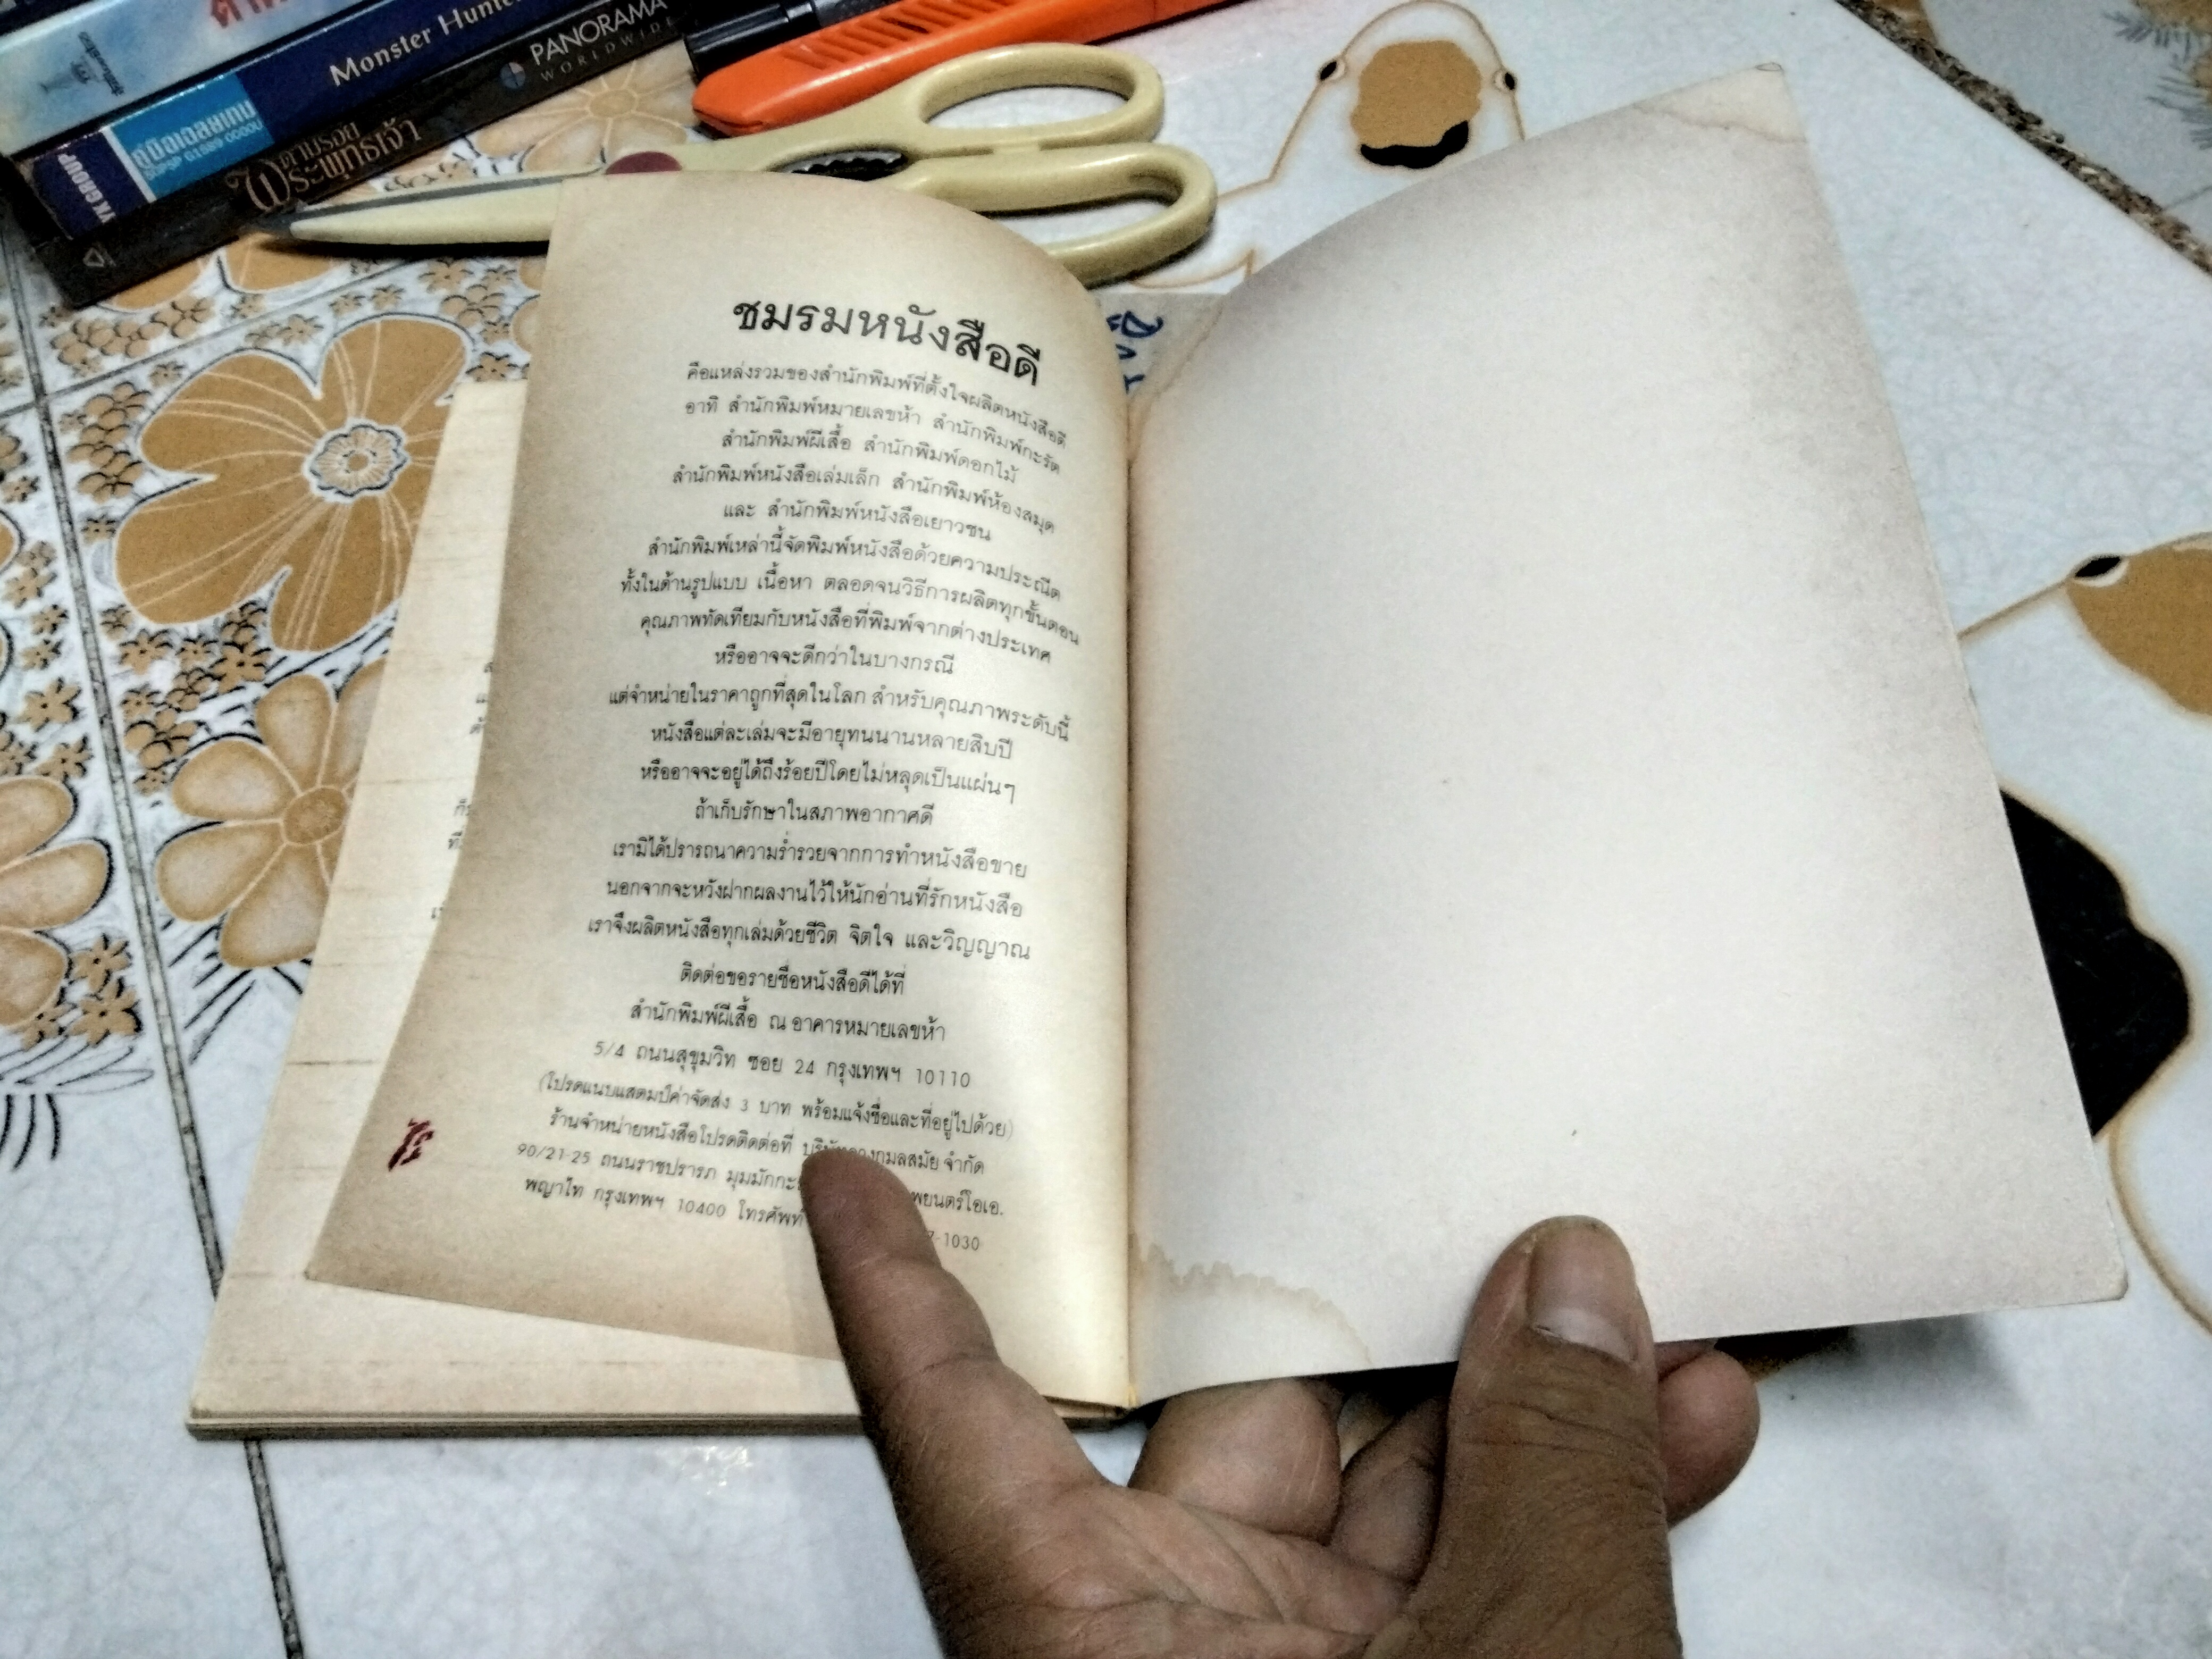 Monster Hunter
PANORAMA
WORLDWIDE
คู่มือเฉลยเกม
YK GROUP
ตามรอย
พระพุทธเจ้า
ชมรมหนังสือดี
คือแหล่งรวมของสำนักพิมพ์ที่ตั้งใจผลิตหนังสือดี
อาทิ สำนักพิมพ์หมายเลขห้า สำนักพิมพ์กะรัต
สำนักพิมพ์ผีเสื้อ สำนักพิมพ์ดอกไม้
สำนักพิมพ์หนังสือเล่มเล็ก สำนักพิมพ์ห้องสมุด
และ สำนักพิมพ์หนังสือเยาวชน
สำนักพิมพ์เหล่านี้จัดพิมพ์หนังสือด้วยความประณีต
ทั้งในด้านรูปแบบ เนื้อหา ตลอดจนวิธีการผลิตทุกขั้นตอน
คุณภาพทัดเทียมกับหนังสือที่พิมพ์จากต่างประเทศ
หรืออาจจะดีกว่าในบางกรณี
แต่จำหน่ายในราคาถูกที่สุดในโลก สำหรับคุณภาพระดับนี้
หนังสือแต่ละเล่มจะมีอายุทนนานหลายสิบปี
หรืออาจจะอยู่ได้ถึงร้อยปีโดยไม่หลุดเป็นแผ่นๆ
ถ้าเก็บรักษาในสภาพอากาศดี
เรามิได้ปรารถนาความร่ำรวยจากการทำหนังสือขาย
นอกจากจะหวังฝากผลงานไว้ให้นักอ่านที่รักหนังสือ
เราจึงผลิตหนังสือทุกเล่มด้วยชีวิต จิตใจ และวิญญาณ
ติดต่อขอรายชื่อหนังสือดีได้ที่
สำนักพิมพ์ผีเสื้อ ณ อาคารหมายเลขห้า
5/4 ถนนสุขุมวิท ซอย 24 กรุงเทพฯ 10110
(โปรดแนบแสตมป์ค่าจัดส่ง 3 บาท พร้อมแจ้งชื่อและที่อยู่ไปด้วย)
ร้านจำหน่ายหนังสือโปรดติดต่อที่ บริษัทดวงกมลสมัย จำกัด
90/21-25 ถนนราชปรารภ มุมมักกะ พยนตร์โอเอ.
พญาไท กรุงเทพฯ 10400 โทรศัพท์ 7-1030